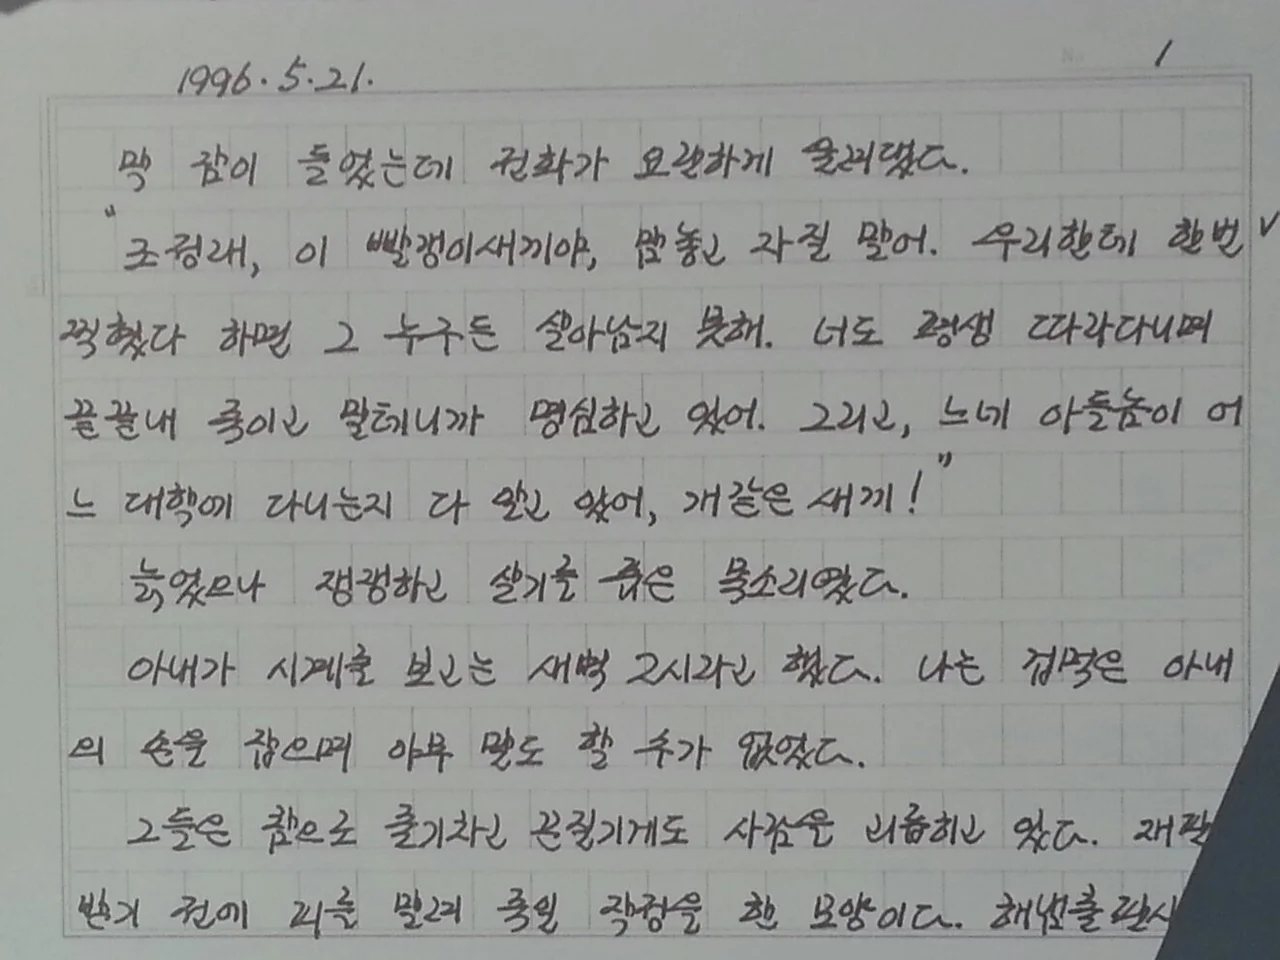 1996.5.21.
1
막 잠이 들었는데 전화가 요란하게 울려댔다.
"조정래, 이 빨갱이새끼야, 맘놓고 자질 말어. 우리한테 한번
찍혔다 하면 그 누구든 살아남지 못해. 너도 평생 따라다니며
끝끝내 죽이고 말테니까 명심하고 있어. 그리고, 느네 아들놈이 어
느 대학에 다니는지 다 알고 있어, 개같은 새끼!"
늙었으나 쟁쟁하고 살기를 품은 목소리였다.
아내가 시계를 보고는 새벽 2시라고 했다. 나는 겁먹은 아내
의 손을 잡으며 아무 말도 할 수가 없었다.
그들은 참으로 줄기차고 끈질기게도 사람을 괴롭히고 있다. 재판
받기 전에 피를 말려 죽일 작정을 한 모양이다. 해냄출판사